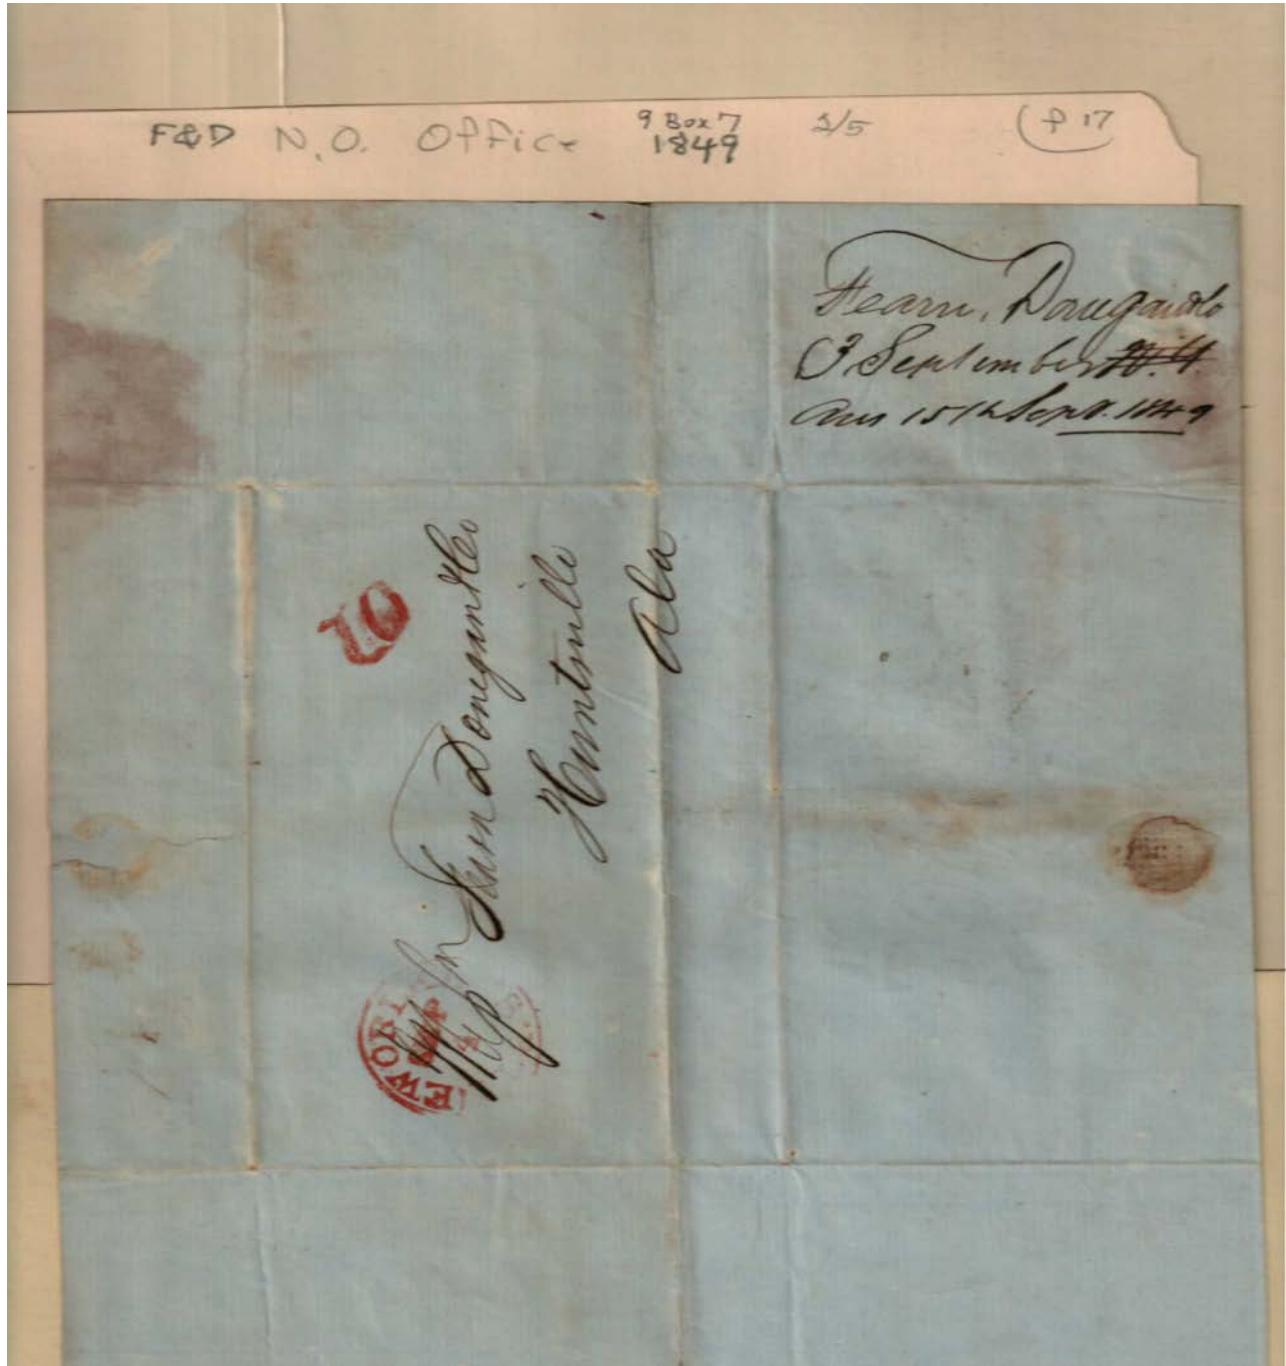 F&D N.O. Office 9 Box 7 1849 2/5 (P 17
Fearn, Donegan & Co
3 September
Ans 15th Sept. 1849
10
Fearn Donegan & Co
Huntsville
Ala
EWORL